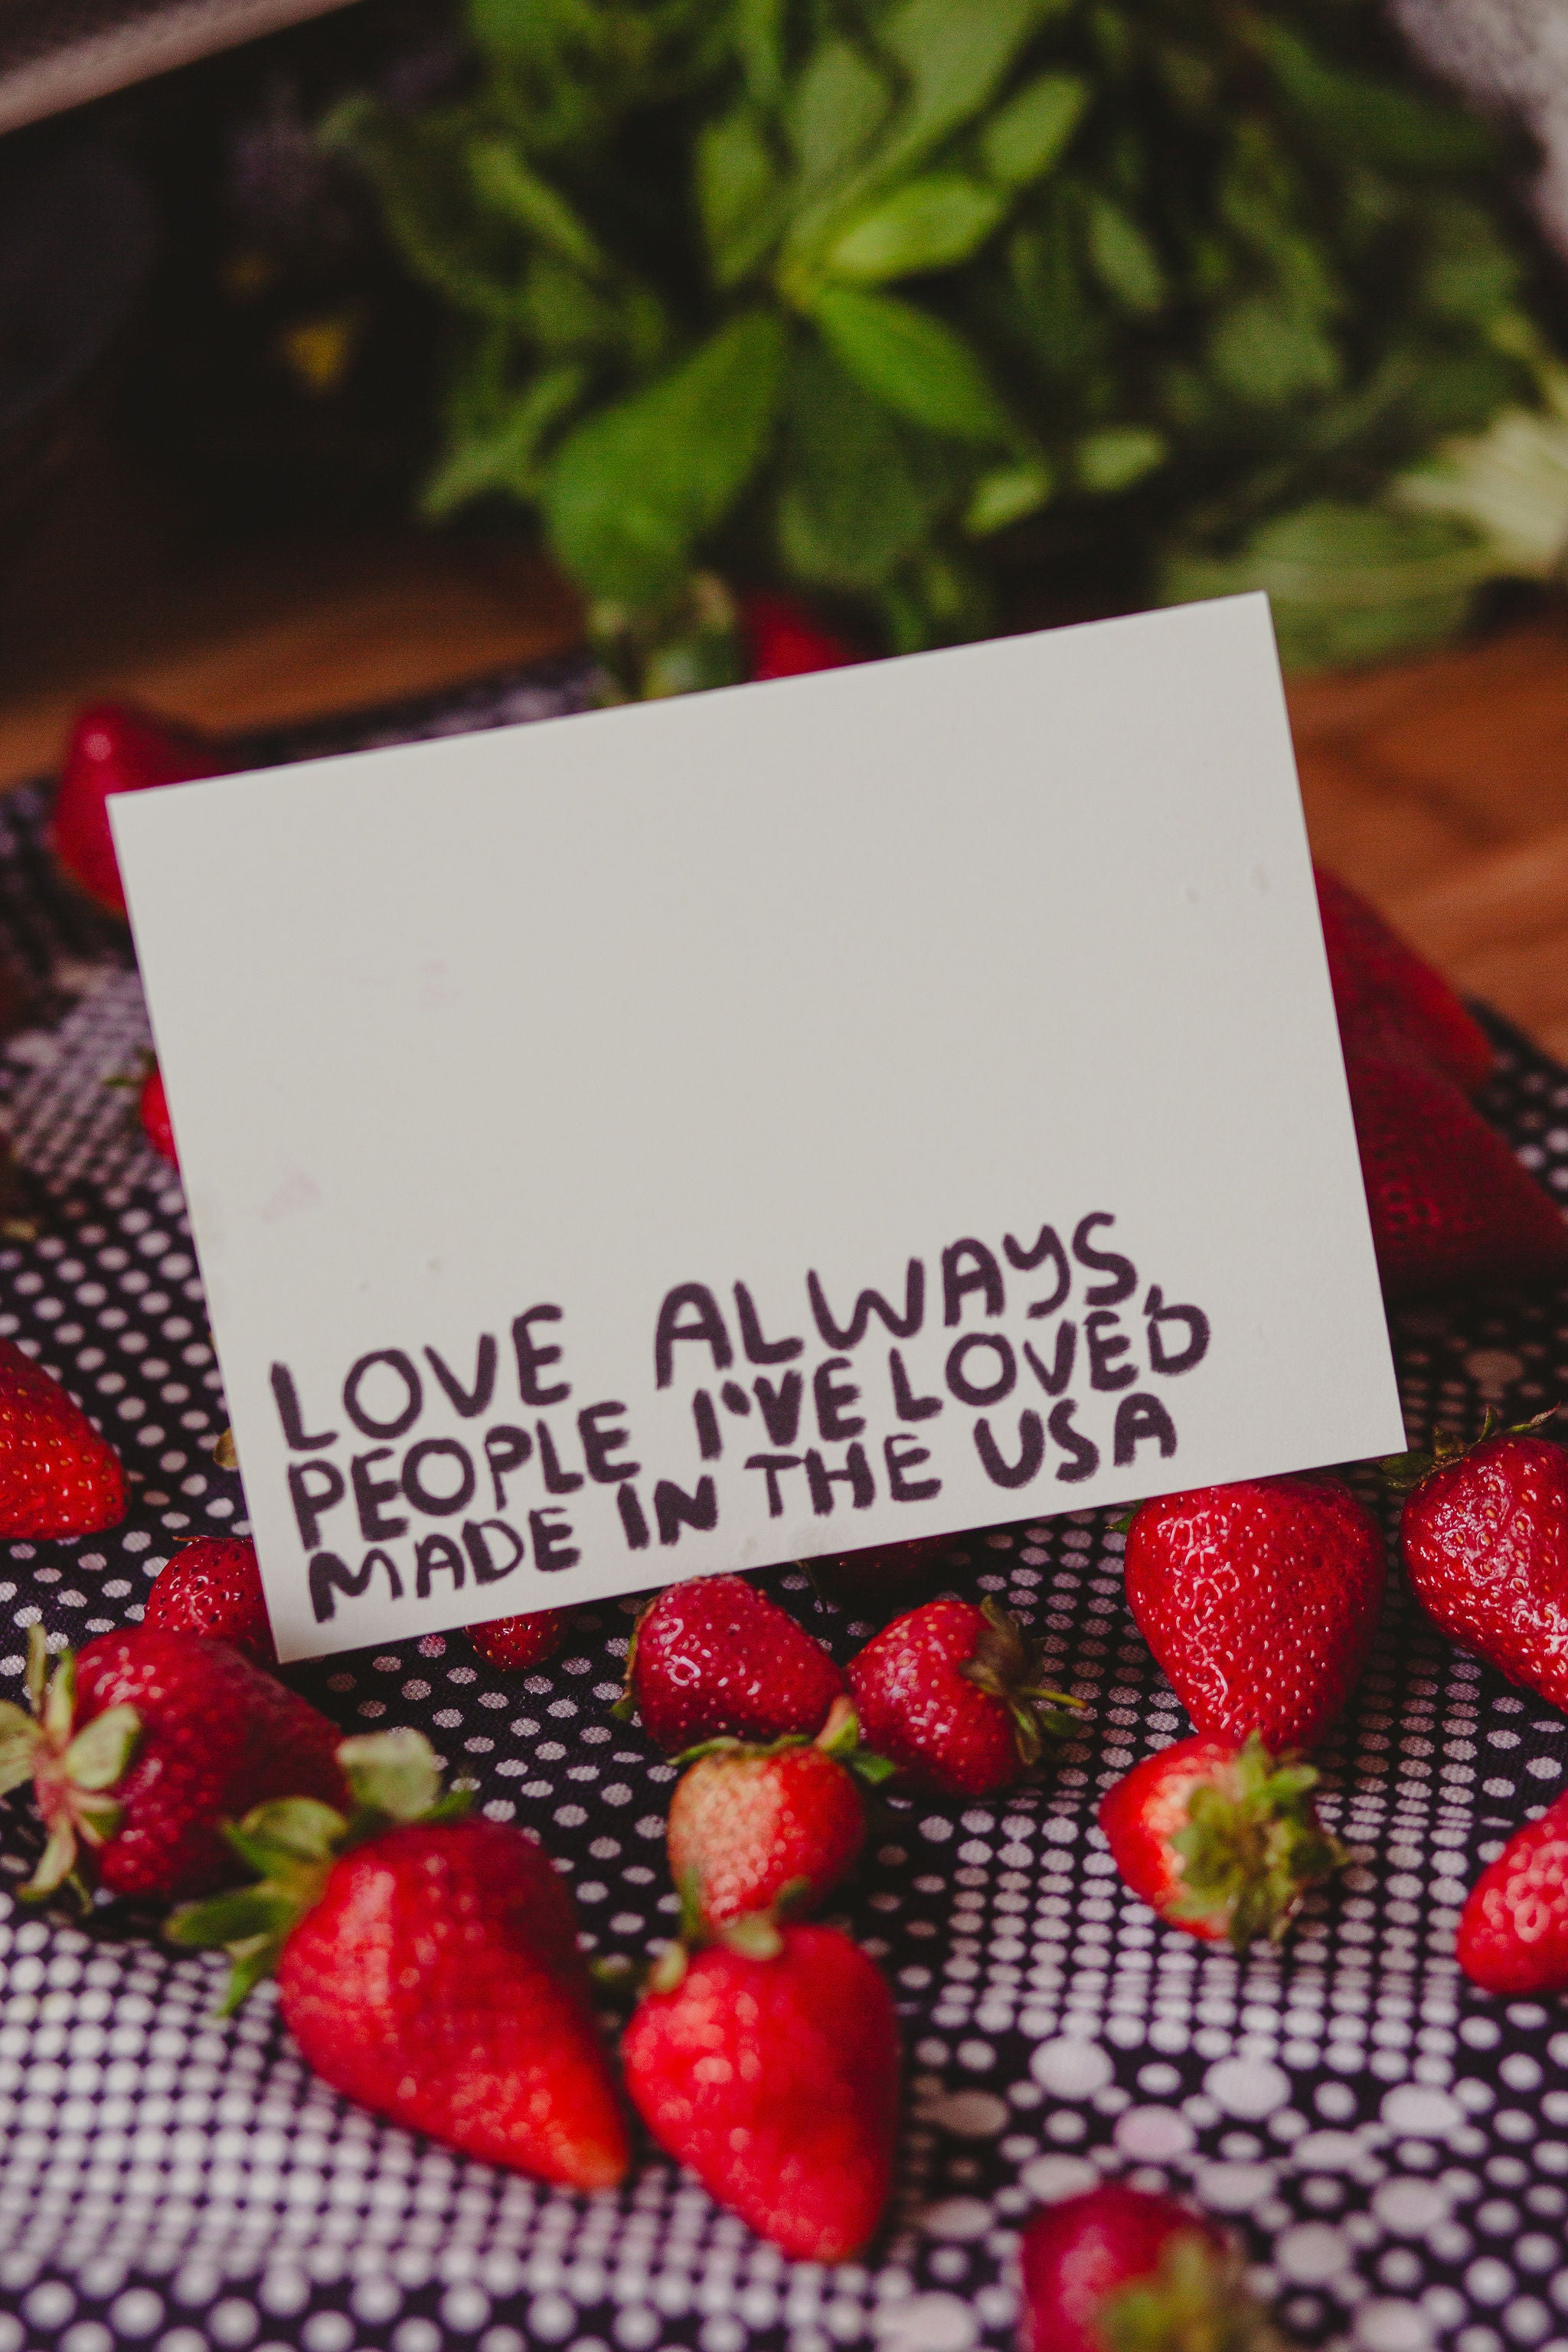 LOVE ALWAYS,
PEOPLE I'VE LOVED
MADE IN THE USA